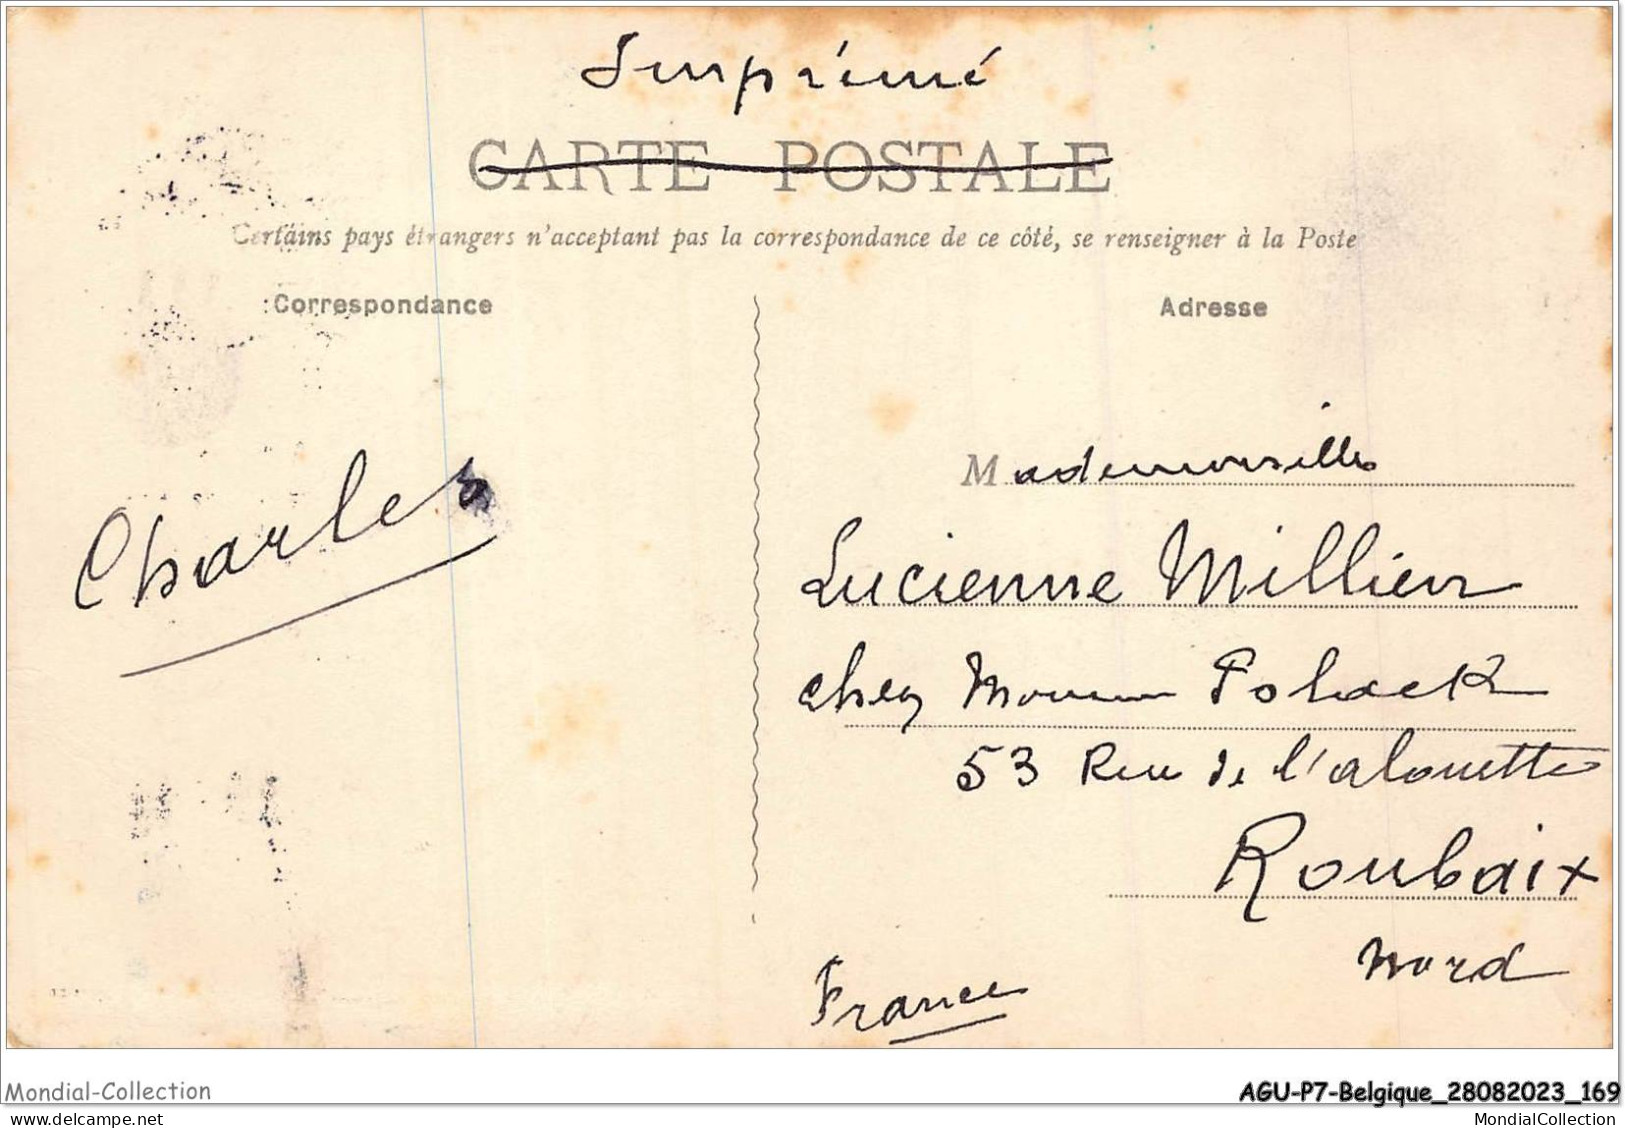 Imprimé
CARTE POSTALE
Certains pays étrangers n'acceptant pas la correspondance de ce côté, se renseigner à la Poste
Correspondance
Adresse
Mademoiselle
Charles
Lucienne Millien
chez Polack
53 Rue de l'alouette
Roubaix
Nord
France
Mondial-Collection
AGU-P7-Belgique_28082023_169
MondialCollection